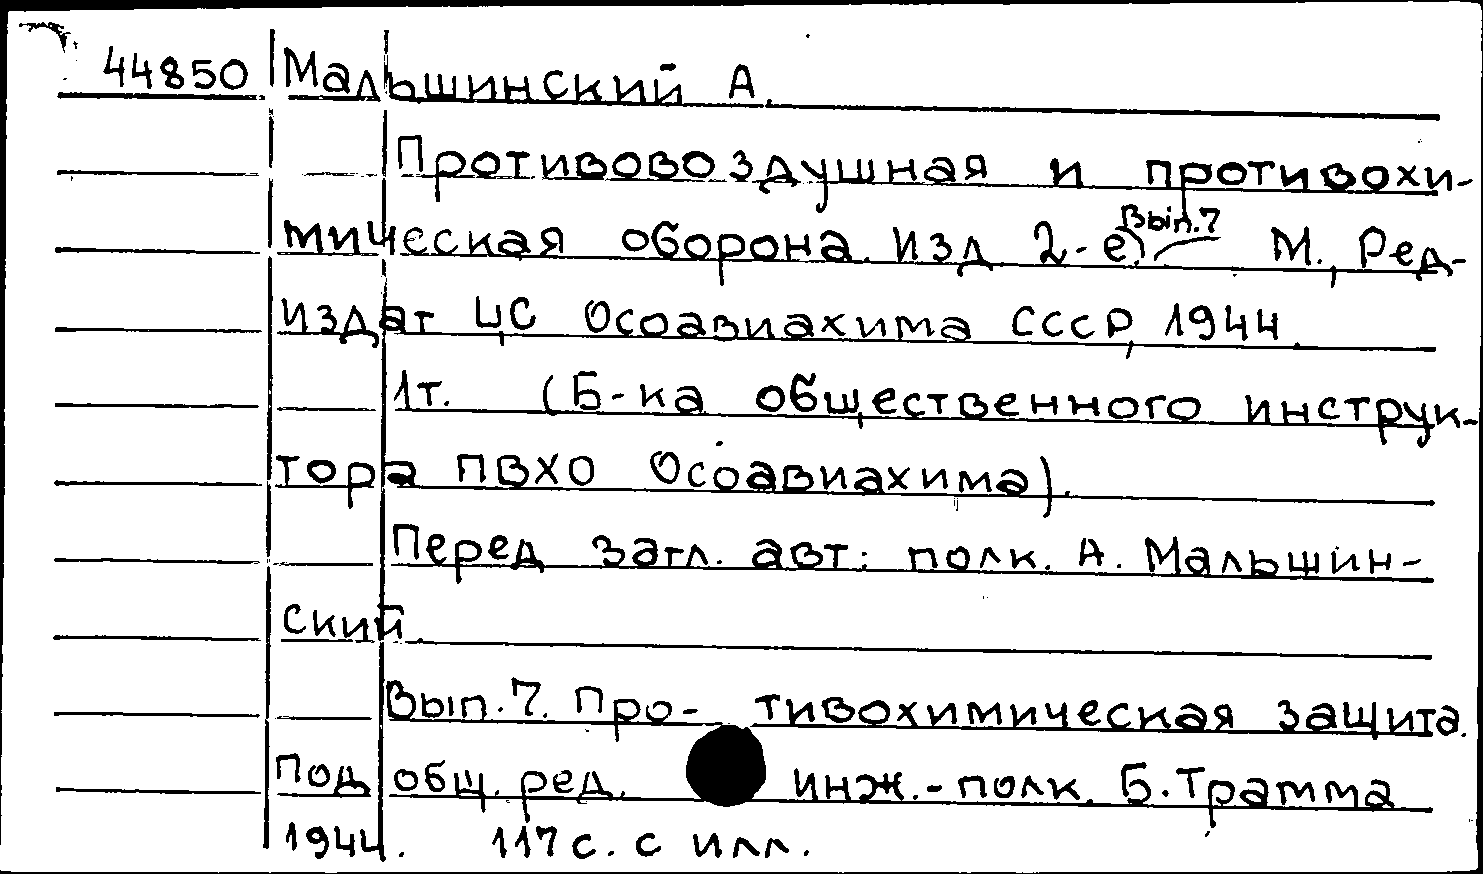 44850 Мальшинский А.
Противовоздушная и противохи-
мическая оборона. Изд 2-е. Вып.7 М., Ред-
издат ЦС Осоавиахима СССР, 1944.
1т. (Б-ка общественного инструк-
тора ПВХО Осоавиахима).
Перед загл. авт: полк. А. Мальшин-
ский.
Вып.7. Противохимическая защита.
Под общ. ред. инж.-полк. Б. Трамма
1944. 117с. с илл.